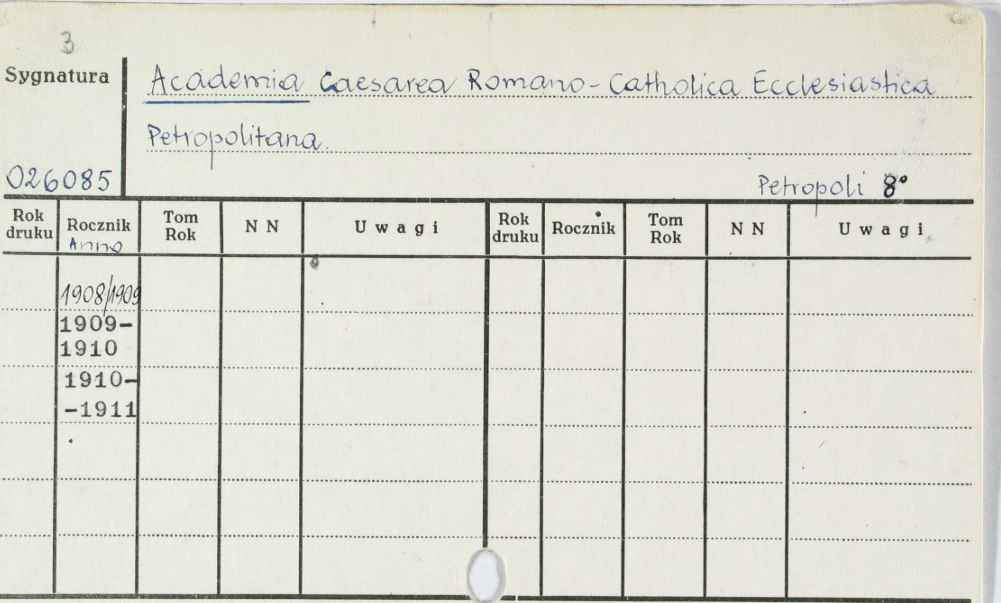 3
Sygnatura
Academia Caesarea Romano-Catholica Ecclesiastica
Petropolitana.
026085
Petropoli 8°
Rok druku Rocznik Anno Tom Rok N N Uwagi Rok druku Rocznik Tom Rok N N Uwagi
1908/1909
1909-
1910
1910-
-1911